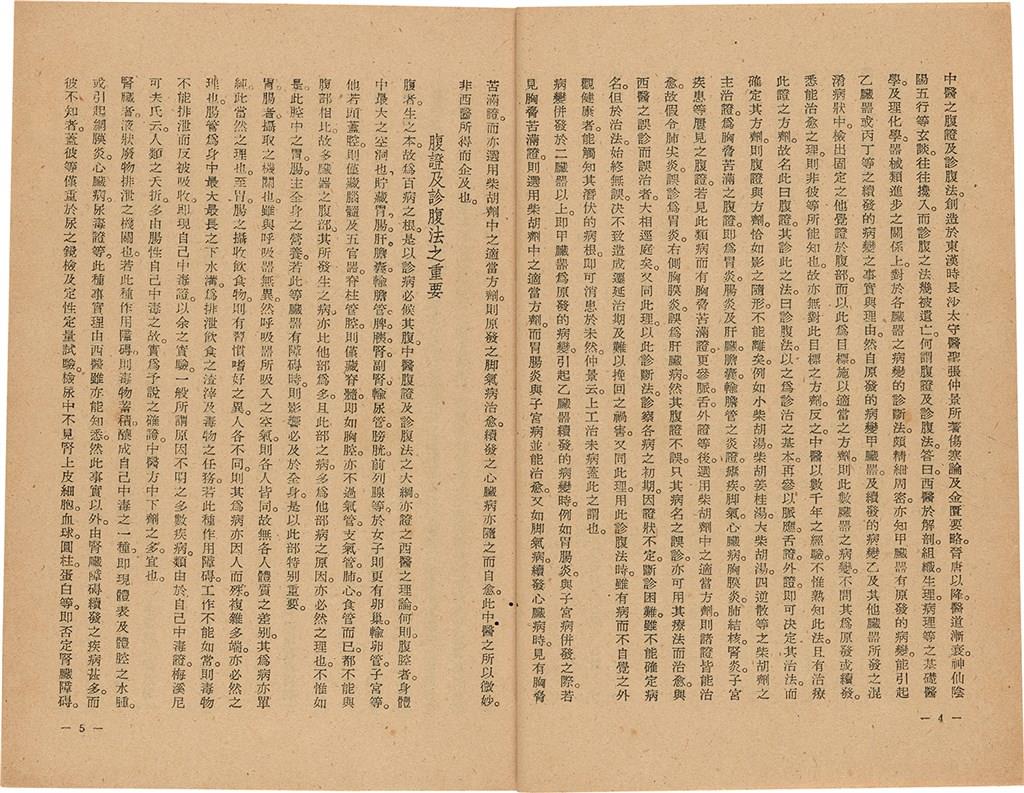 中醫之腹證及診腹法。創造於東漢時長沙太守醫聖張仲景所著傷寒論及金匱要略。晉唐以降醫道漸衰。神仙陰
陽五行等玄談。往往攙入。而診腹之法幾被遺亡。何謂腹證及診腹法。答曰。西醫於解剖組織生理病理等之基礎醫
學。及理化學器械類進步之關係上。對於各臟器之病變的診斷法。頗精細周密。亦知甲臟器有原發的病變。能引起
乙臟器或丙丁等之續發的病變之事實與理由。然自原發的病變甲臟器。及續發的病變乙及其他臟器所發之混
淆病狀中。檢出固定之他覺證於腹部。而以此爲目標。施以適當之方劑。則此數臟器之病變。不問其爲原發或續發。
悉能治愈之理。則非彼等所能知也。故亦無對此目標之方劑。反之中醫以數千年之經驗。不惟熟知此法。且有治療
此證之方劑。故名此曰腹證。其診此之法曰診腹法。以之爲診治之基本。再參以脈應舌證外證。即可決定其治法。而
確定其方劑。則腹證與方劑。恰如影之隨形。不能離矣。例如小柴胡湯柴胡姜桂湯大柴胡湯四逆散等之柴胡劑之
主治證。爲胸脅苦滿之腹證。即爲胃炎腸炎及肝臟膽囊輸膽管之炎證瘧疾脚氣心臟病胸膜炎肺結核腎炎子宮
疾患等屢見之腹證。若見此類病而有胸脅苦滿證。更參脈舌外證等。後選用柴胡劑中之適當方劑。則諸證皆能治
愈。故假令肺尖炎誤診爲胃炎。右側胸膜炎誤爲肝臟病。然其腹證不誤。只其病名之誤診。亦可用其療法而治愈。與
西醫之誤診而誤治者。大相逕庭矣。又同此理。以此診斷法。診察各病之初期。因證狀不定。斷診困難。雖不能確定病
名。但於治法。始終無誤。決不致造成遷延治期及難以挽回之禍害。又同此理。用此診腹法時。雖有病而不自覺之外
觀健康者。能觸知其潛伏的病根。即可消患於未然。仲景云上工治未病。蓋此之謂也。
病變併發於二臟器以上。即甲臟器爲原發的病變。引起乙臟器續發的病變時。例如胃腸炎與子宮病併發之際。若
見胸脅苦滿證。則選用柴胡劑中之適當方劑。而胃腸炎與子宮病並能治愈。又如脚氣病續發心臟病時。見有胸脅
— 4 —
苦滿證。而亦選用柴胡劑中之適當方劑。則原發之脚氣病治愈。續發之心臟病亦隨之而自愈。此中醫之所以微妙。
非西醫所得而企及也。
腹證及診腹法之重要
腹者。生之本。故爲百病之根。是以診病必候其腹。中醫腹證及診腹法之大綱。亦證之西醫之理論。何則。腹腔者。身體
中最大之空洞也。貯藏胃腸肝膽囊輸膽管脾膵腎副腎輸尿管膀胱前列腺等。於女子則更有卵巢輸卵管子宮等。
他若頭蓋腔則僅藏腦髓及五官器。脊柱管腔則僅藏脊髓。即如胸腔。亦不過氣管支氣管肺心食管而已。都不能與
腹部相比。故多臟器之腹部。其所發生之病。亦比他部爲多。且此部之病。多爲他部病之原因。亦必然之理也。不惟如
是。此腔中之胃腸。主全身之營養。若此等臟器有障碍時。則影響必及於全身。是以此部特別重要。
胃腸者。攝取之機關也。雖與呼吸器無異。然呼吸器所吸入之空氣。則各人皆同。故無各人體質之差別。其爲病亦單
純。此當然之理也。至胃腸之攝收飲食物。則有習慣嗜好之異。人各不同。則其爲病。亦因人而殊。複雜多端。亦必然之
理也。腸管爲身中最大最長之下水溝。爲排泄飲食之渣滓及毒物之任務。若此種作用障碍。工作不能如常。則毒物
不能排泄。而反被吸收。即現自己中毒證。以余之實驗。一般所謂原因不明之多數疾病。類由於自己中毒證。梅溪尼
可夫氏云。人類之夭折。多由腸性自己中毒之故。實爲予說之確證。中醫方中下劑之多宜也。
腎臟者。液狀廢物排泄之機關也。若此種作用障碍。則毒物蓄積。釀成自己中毒之一種。即現體表及體腔之水腫。
或引起網膜炎。心臟病尿毒證等。此種事實理由。西醫雖亦能知悉。然此事實以外。由腎臟障碍續發之疾病甚多。而
彼不知者。蓋彼等僅重於尿之鏡檢及定性定量試驗。檢尿中不見腎上皮細胞血球圓柱蛋白等。即否定腎臟障碍。
— 5 —